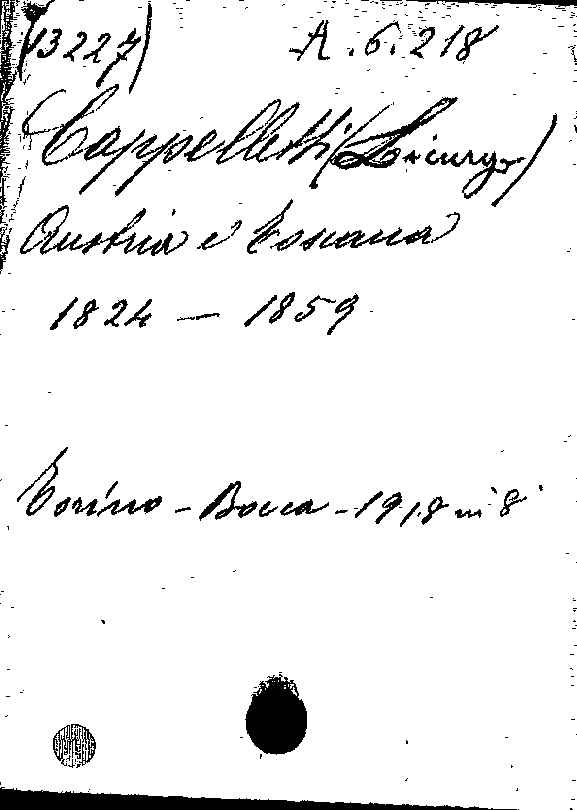 (13227) A. 6. 218
Cappelletti (Licurgo)
Austria e Toscana
1824 — 1859
Torino - Bocca - 1918 in 8°